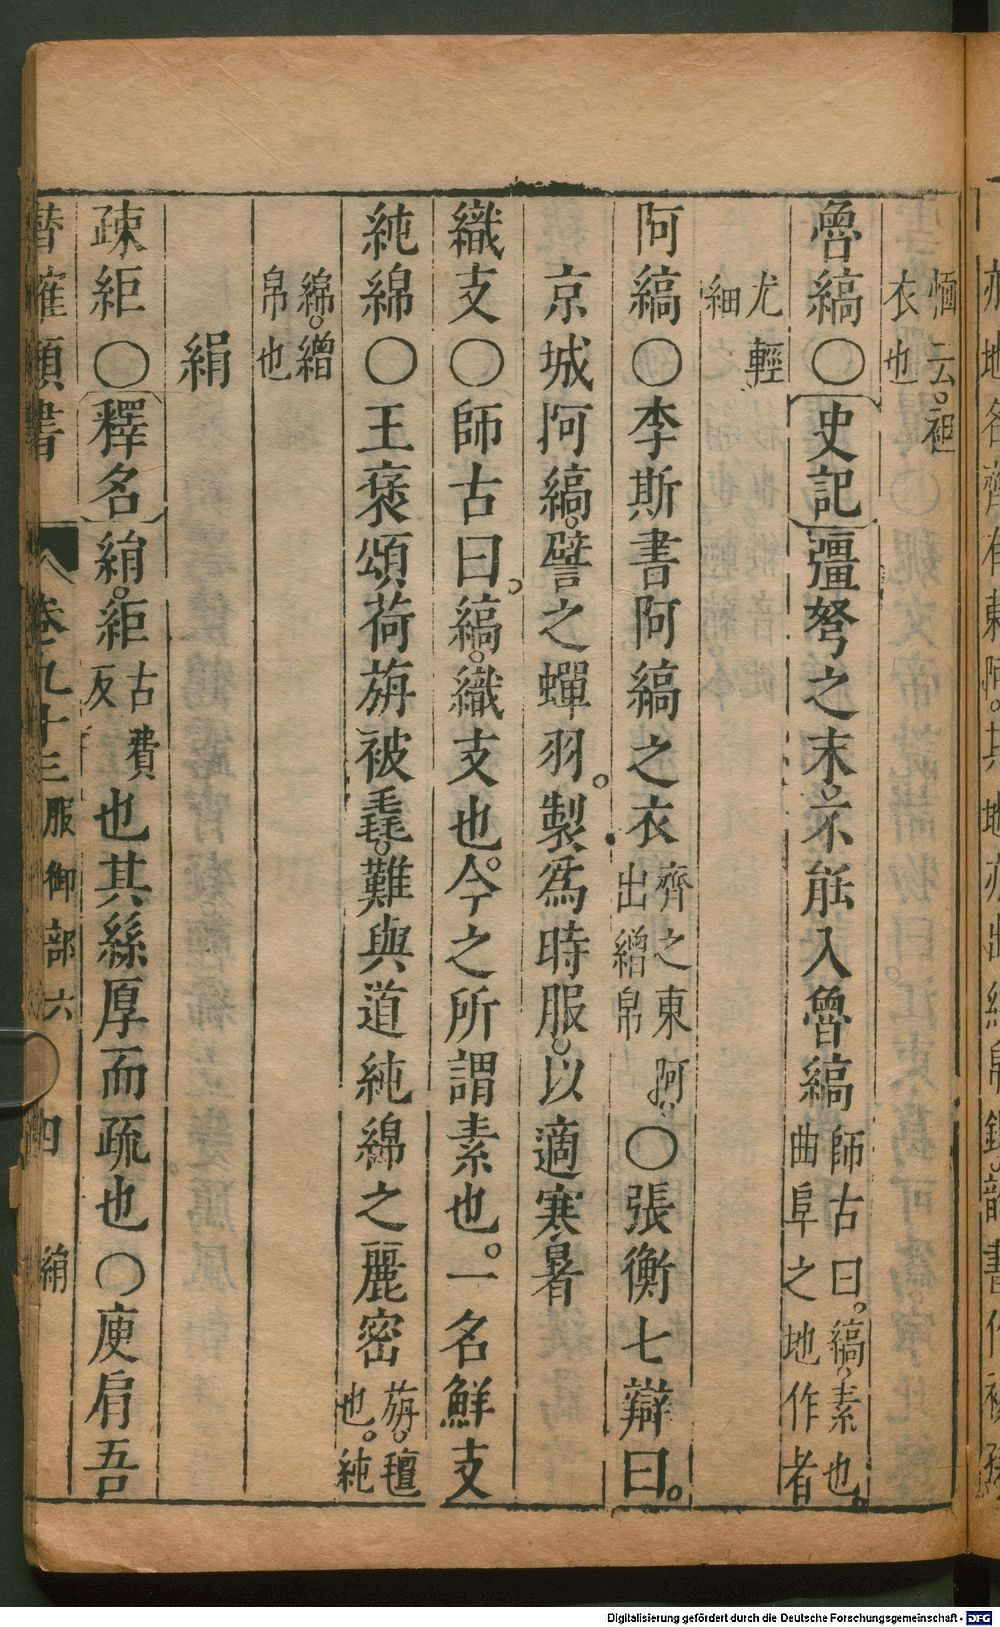 緬云。䄙
衣也
魯縞〇史記彊弩之末。不能入魯縞師古曰。縞。素也。
曲阜之地作者
尤輕
細
阿縞〇李斯書阿縞之衣齊之東阿。
出繒帛〇張衡七辯曰。
京城阿縞。譬之蟬羽。製爲時服。以適寒暑
織支〇師古曰。縞。織支也。今之所謂素也。一名鮮支
純綿〇王褒頌荷旃被毳。難與道純綿之麗密旃。氊
也。純
綿。繒
帛也
絹
疎䊵〇釋名絹。䊵古費
反也其絲厚而疏也〇庾肩吾
潛確類書 卷九十三 服御部六 四 絹
Digitalisierung gefördert durch die Deutsche Forschungsgemeinschaft - DFG